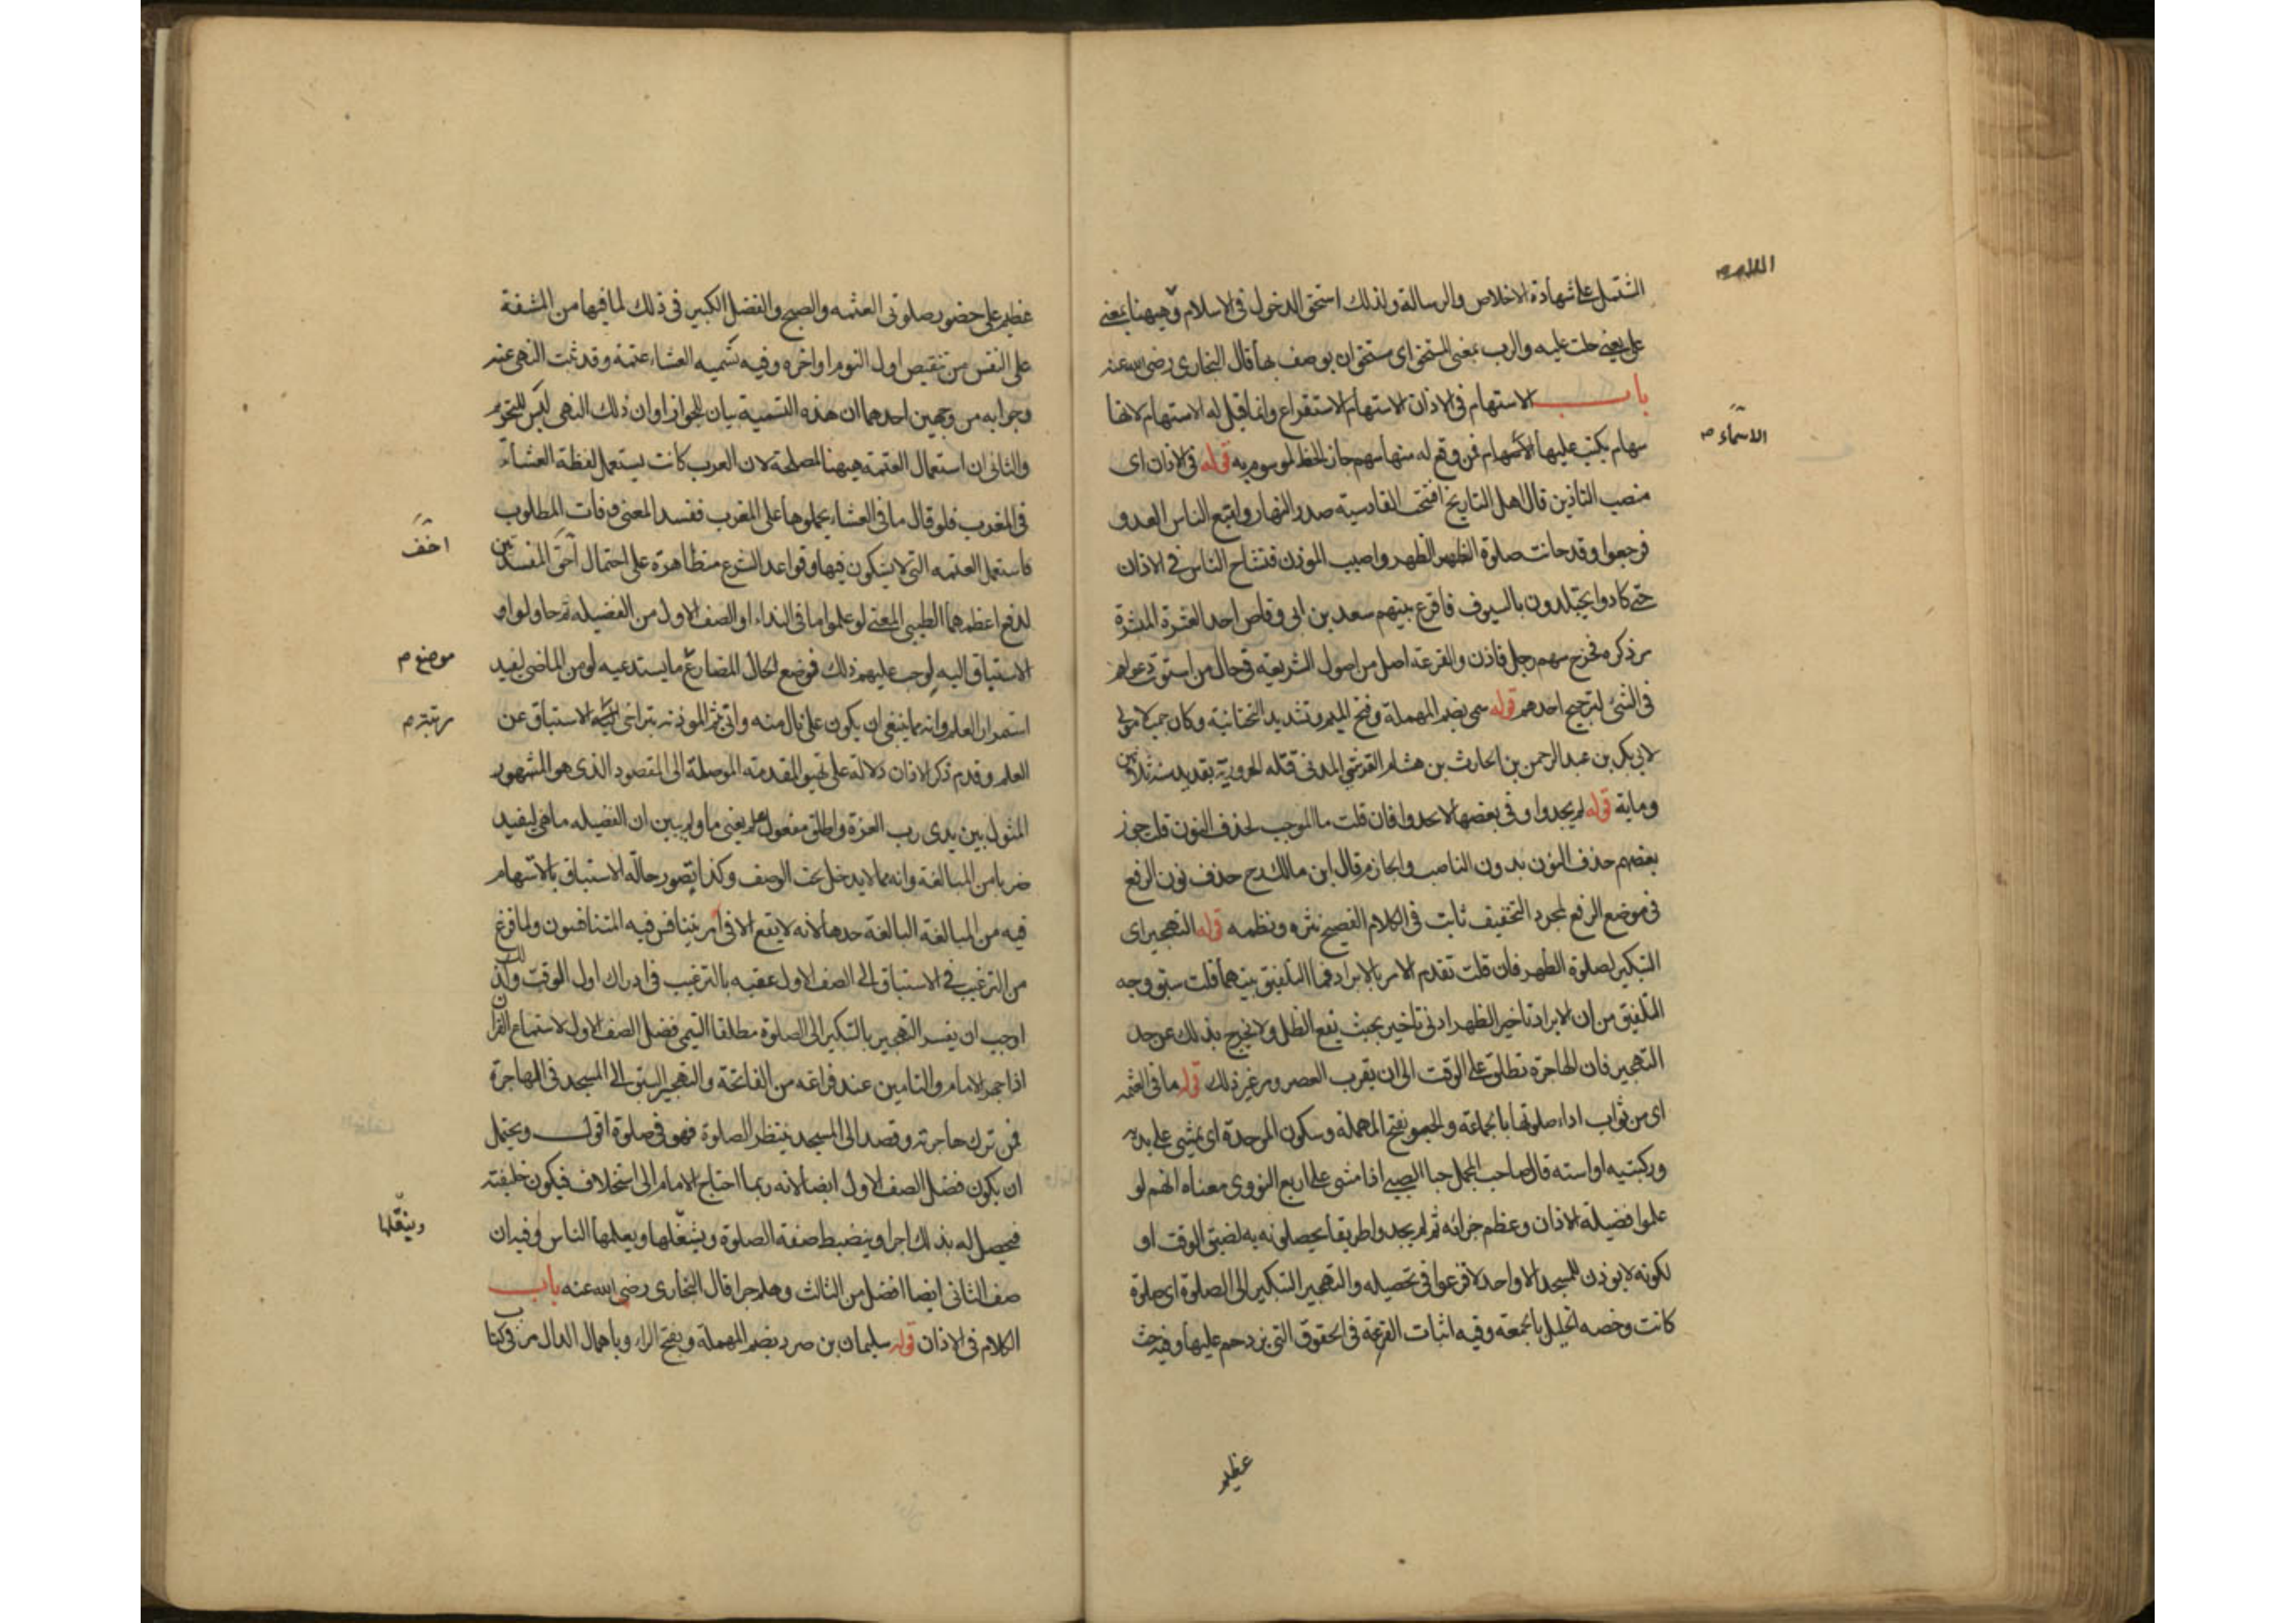 المشتمل على شهادة الاخلاص والرسالة ولذلك استحق الدخول فى الاسلام وههنا بمعنى
على يعنى حلت عليه والرب بمعنى المستحق اى مستحق ان يوصف بها قال البخارى رضى الله عنه
باب الاستهام فى الاذان الاستهام الاستقراع وانما قيل له الاستهام لانها
سهام يكتب عليها الاسهام فمن وقع له منها سهم حاز الحظ الموسوم به قوله فى الاذان اى
منصب التاذين قال اهل التاريخ افتتحت القادسية صدر النهار واتبع الناس العدو
فرجعوا وقد حانت صلوة الظهر الظهر واصيب الموذن فتشاح الناس فى الاذان
حتى كادوا يجتلدون بالسيوف فاقرع بينهم سعد بن ابى وقاص احد العشرة المبشرة
مر ذكره فخرج سهم رجل فاذن والقرعة اصل من اصول الشريعة فى حال من استوت دعواهم
فى الشئ لترجيح احدهم قوله سمى بضم المهملة وفتح الميم وتشديد التحتانية وكان جميلا مولى
لابى بكر بن عبد الرحمن بن الحارث بن هشام القرشى المدنى قتله الحرورية بقديد سنة ثلاثين
وماية قوله لم يجدوا وفى بعضها لا يجدوا فان قلت ما الموجب لحذف النون قلت جوز
بعضهم حذف النون بدون الناصب والجازم قال ابن مالك ح حذف نون الرفع
فى موضع الرفع لمجرد التخفيف ثابت فى الكلام الفصيح نثره ونظمه قوله التهجير اى
التبكير لصلوة الظهر فان قلت تقدم الامر بالابراد فما التلفيق بينهما قلت سبق وجه
التلفيق من ان الابراد تاخير الظهر ادنى تاخير بحيث يقع الظل ولا يخرج بذلك عن حد
التهجير فان الهاجرة تطلق على الوقت الى ان يقرب العصر ومر غير ذلك قوله ما فى العتمه
اى من ثواب اداء صلوتها بالجماعة والحبو بفتح المهملة وسكون الموحدة اى يمشى على يديه
وركبتيه او استه قال صاحب المجمل حبا الصبى اذا مشى على اربع النووى معناه انهم لو
علموا فضيلة الاذان وعظم جزائه ثم لم يجدوا طريقا يحصلونه به لضيق الوقت او
لكونه لا يوذن للمسجد الا واحد لاقترعوا فى تحصيله والتهجير التبكير الى الصلوة اى صلوة
كانت وخصه الخليل بالجمعة وفيه اثبات القرعة فى الحقوق التى يزدحم عليها وفيه حث
عظيم
الاسماء م
عظيم على حضور صلوتى العتمه والصبح والفضل الكبير فى ذلك لما فيها من المشقة
على النفس من تنقيص اول النوم او اخره وفيه تسميه العشاء عتمة وقد ثبت النهى عنه
وجوابه من وجهين احدهما ان هذه التسمية بيان للجواز وان ذلك النهى ليس للتحريم
والثانى ان استعمال العتمة ههنا لمصلحة لان العرب كانت يستعمل لفظة العشاء
فى المغرب فلو قال ما فى العشاء يحملوها على المغرب ففسد المعنى وفات المطلوب
فاستعمل العتمه التى لا يشكون فيها وقواعد الشرع متظاهرة على احتمال اخف المفسدتين
لدفع اعظمهما الطيبى المعنى لو علموا ما فى النداء او الصف الاول من الفضيله ثم حاولوا و
الاستباق اليه لوجب عليهم ذلك فوضع الحال المضارع ما يستدعيه لو من الماضى ليفيد
استمرار العلم وانه مما ينبغى ان يكون على بال منه واتى بثم الموذنه بتراخى رتبة الاستباق عن
العلم وقدم ذكر الاذان دلالة على تهيو المقدمة الموصلة الى المقصود الذى هو المشهور
المثول بين يدى رب العزة واطلق مفعول يعلم يعنى ما ولم يبين ان الفضيله ما هى ليفيد
ضربا من المبالغة وانه مما لا يدخل تحت الوصف وكذا يصور حالة الاستباق بالاستهام
فيه من المبالغة البالغة حدها لانه لا يقع الا فى امر يتنافس فيه المتنافسون ولما فرغ
من الترغيب فى الاستباق الى الصف الاول عقبه بالترغيب فى ادراك اول الوقت ولذلك
اوجب ان يفسر التهجير بالتبكير الى الصلوة مطلقا التيمى فضل الصف الاول لاستماع القرآن
اذا جهر الامام والتامين عند فراغه من الفاتحة والتهجير السبق الى المسجد فى الهاجرة
فمن ترك حاجرته وقصد الى المسجد ينتظر الصلوة فهو فى صلوة اقول ويحتمل
ان يكون فضل الصف الاول ايضا لانه ربما احتاج الامام الى استخلاف فيكون خليفته
فيحصل له بذلك اجرا ويضبط صفة الصلوة وينقلها ويعلمها الناس وفيه ان
صف الثانى ايضا افضل من الثالث وهلم جرا قال البخارى رضى الله عنه باب
الكلام فى الاذان قوله سليمان بن صرد بضم المهملة وبفتح الراء وباهمال الدال مر فى كتاب
اخف
موضع م
رتبة م
وينقلها